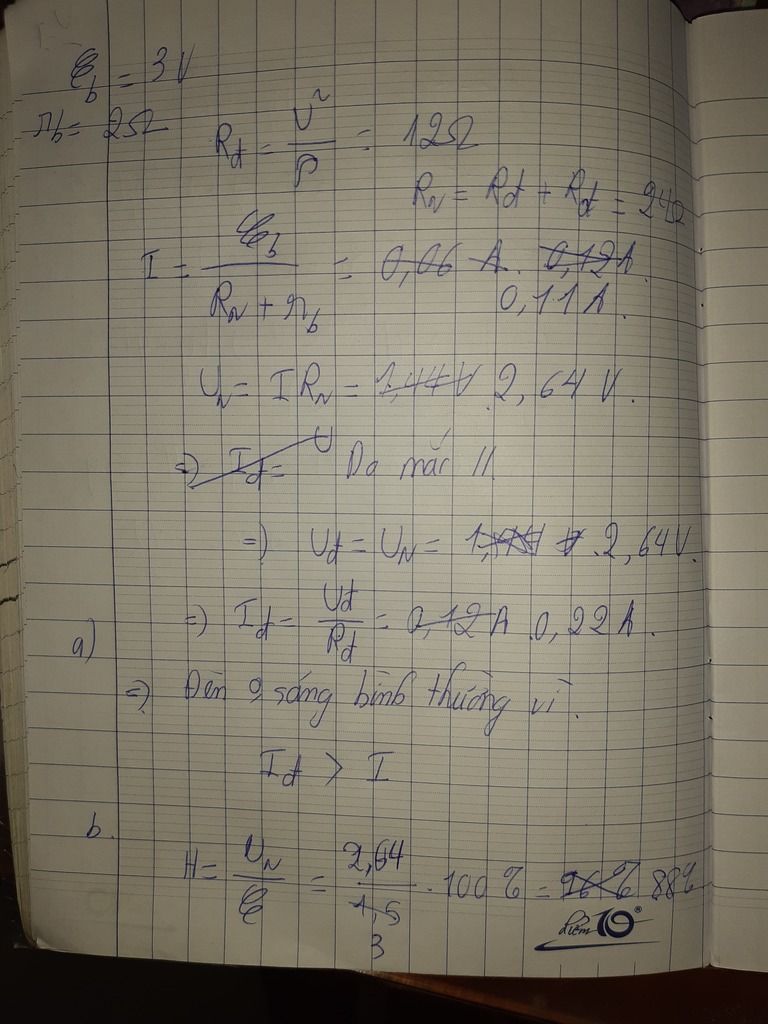 ℰb = 3V
rb = 2Ω
Rđ = U²/P = 12Ω
RN = Rđ + Rđ = 24Ω
I = ℰb/(RN + rb) = 0,06 A. 0,12A.
0,11A.
UN = IRN = 1,44V 2,64V.
=> Iđ = U Do mắc //
=> Uđ = UN = V. 2,64V.
a) => Iđ = Uđ/Rđ = 0,12A 0,22A.
=> Đèn sáng bình thường vì.
Iđ > I
b. H = UN/ℰ = 2,64/1,5 3 .100% = 88%
điểm 10